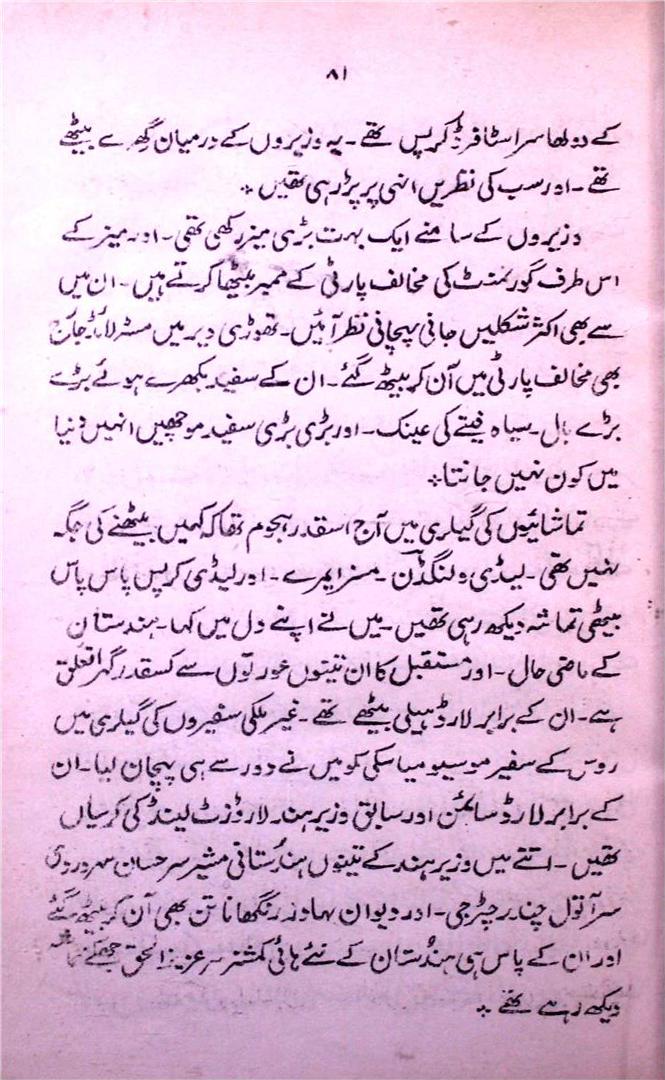 ۸۱
کے دولھا سر اسٹافرڈ کرپس تھے ۔ یہ وزیروں کے درمیان گھرے بیٹھے
تھے ۔ اور سب کی نظریں انہی پر پڑ رہی تھیں ٭
وزیروں کے سامنے ایک بہت بڑی میز رکھی تھی ۔ اور میز کے
اس طرف گورنمنٹ کی مخالف پارٹی کے ممبر بیٹھا کرتے ہیں ۔ ان میں
سے بھی اکثر شکلیں جانی پہچانی نظر آئیں ۔ تھوڑی دیر میں مسٹر لائڈ جارج
بھی مخالف پارٹی میں آن کر بیٹھ گئے ۔ ان کے سفید بکھرے ہوئے بڑے
بڑے بال ۔ سیاہ فیتے کی عینک ۔ اور بڑی بڑی سفید موچھیں انہیں دنیا
میں کون نہیں جانتا ٭
تماشائیوں کی گیلری میں آج اسقدر ہجوم تھا کہ کہیں بیٹھنے کی جگہ
نہیں تھی ۔ لیڈی ولنگڈن ۔ مسز ایمرے ۔ اور لیڈی کرپس پاس پاس
بیٹھی تماشہ دیکھ رہی تھیں ۔ میں نے اپنے دل میں کہا ۔ ہندستان
کے ماضی حال ۔ اور مستقبل کا ان تینوں عورتوں سے کسقدر گہرا تعلق
ہے ۔ ان کے برابر لارڈ ہیلی بیٹھے تھے ۔ غیر ملکی سفیروں کی گیلری میں
روس کے سفیر موسیو میاسکی کو میں نے دور سے ہی پہچان لیا ۔ ان
کے برابر لارڈ سائمن اور سابق وزیر ہند لارڈ زٹ لینڈ کی کرسیاں
تھیں ۔ اتنے میں وزیر ہند کے تینوں ہندُستانی مشیر سر حسان سہروردی
سر آتول چندر چٹرجی ۔ اور دیوان بہادر رنگھاناتن بھی آن کر بیٹھ گئے
اور ان کے پاس ہی ہندُستان کے نئے ہائی کمشنر سر عزیز الحق جھکے تماشہ
دیکھ رہے تھے ٭